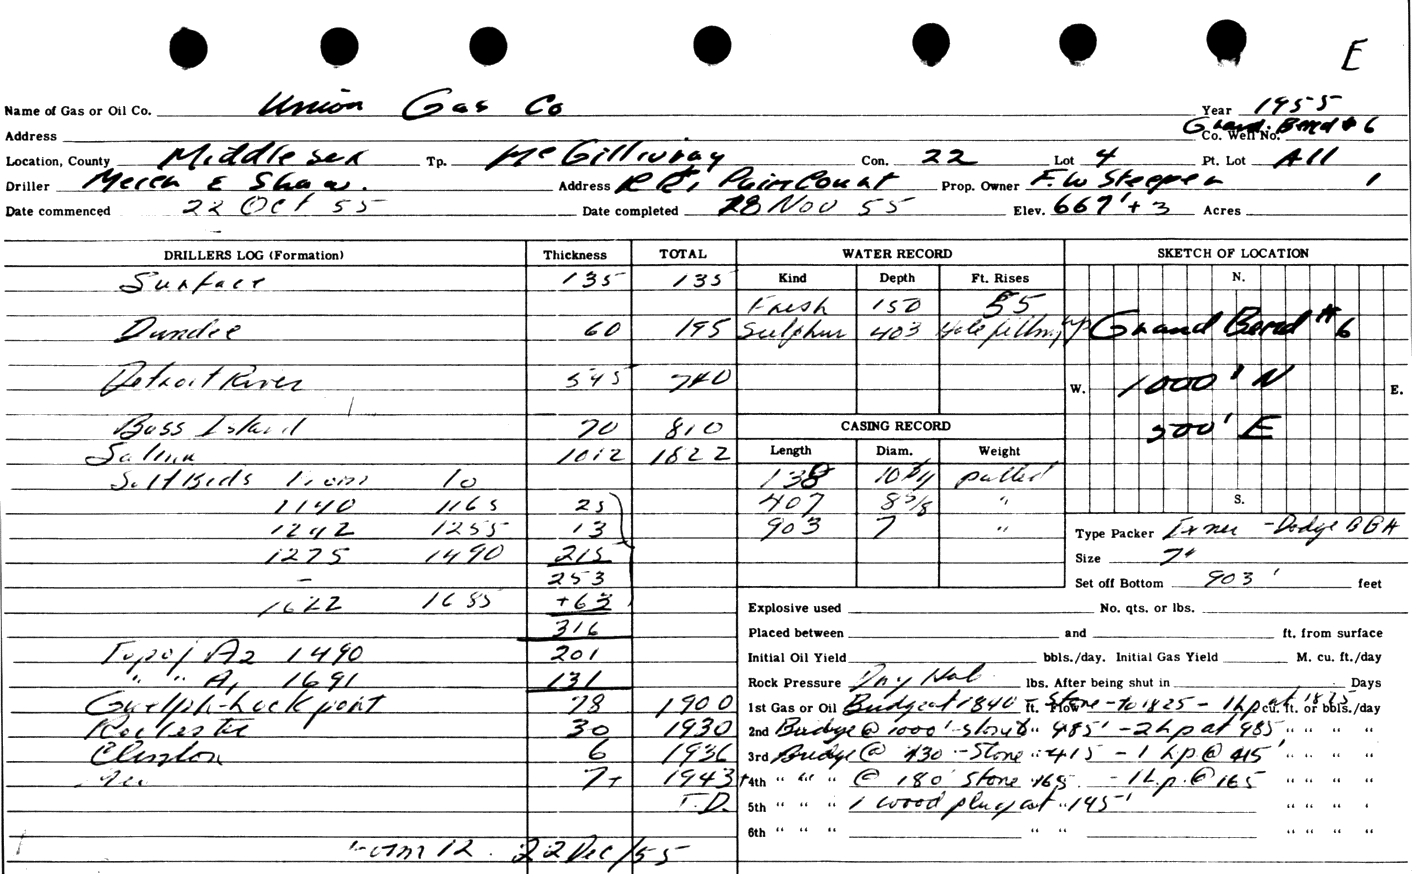 E
Name of Gas or Oil Co. Union Gas Co Year 1955
Address Co. Well No. Grand Bend # 6
Location, County Middlesex Tp. McGillivray Con. 22 Lot 4 Pt. Lot All
Driller & Shaw. Address RR1 PainCourt Prop. Owner F.W Steeper 1
Date commenced 22 Oct 55 Date completed 28 Nov 55 Elev. 667'+3 Acres
DRILLERS LOG (Formation) Thickness TOTAL WATER RECORD SKETCH OF LOCATION
Surface 135 135 Kind Depth Ft. Rises N.
Fresh 150 55
Dundee 60 195 Sulphur 403 Hole filling up Grand Bend # 6
Detroit River 545 740 W. 1000' N E.
Bass Island 70 810 CASING RECORD 500' E
Salina 1012 1822 Length Diam. Weight
Salt Beds From To 138 10 3/4 pulled
1140 1165 25 407 8 5/8 " S.
1242 1255 13 903 7 " Type Packer - Dodge BBH
1275 1490 215 Size 7"
- 253 Set off Bottom 903' feet
1622 1685 +63 Explosive used No. qts. or lbs.
316 Placed between and ft. from surface
Top of A2 1490 201 Initial Oil Yield bbls./day. Initial Gas Yield M. cu. ft./day
" " A1 1691 131 Rock Pressure Dry Hole lbs. After being shut in Days
Guelph-Lockport 78 1900 1st Gas or Oil Bridge at 1840 ft. Flow Stone - to 1825 - 1 hp at 1825 cu. ft. or bbls./day
Rochester 30 1930 2nd Bridge @ 1000' - stone to " 985' - 2 hp at 985 " " " "
Clinton 6 1936 3rd Bridge @ 430 - Stone " 415 - 1 hp @ 415' " " " "
7+ 1943+ 4th " " " @ 180' Stone 165 - 1 h.p. @ 165 " " " "
T.D. 5th " " " 1 wood plug at " 145' " " " "
6th " " " " " " " " "
Form 12. 22 Dec/55